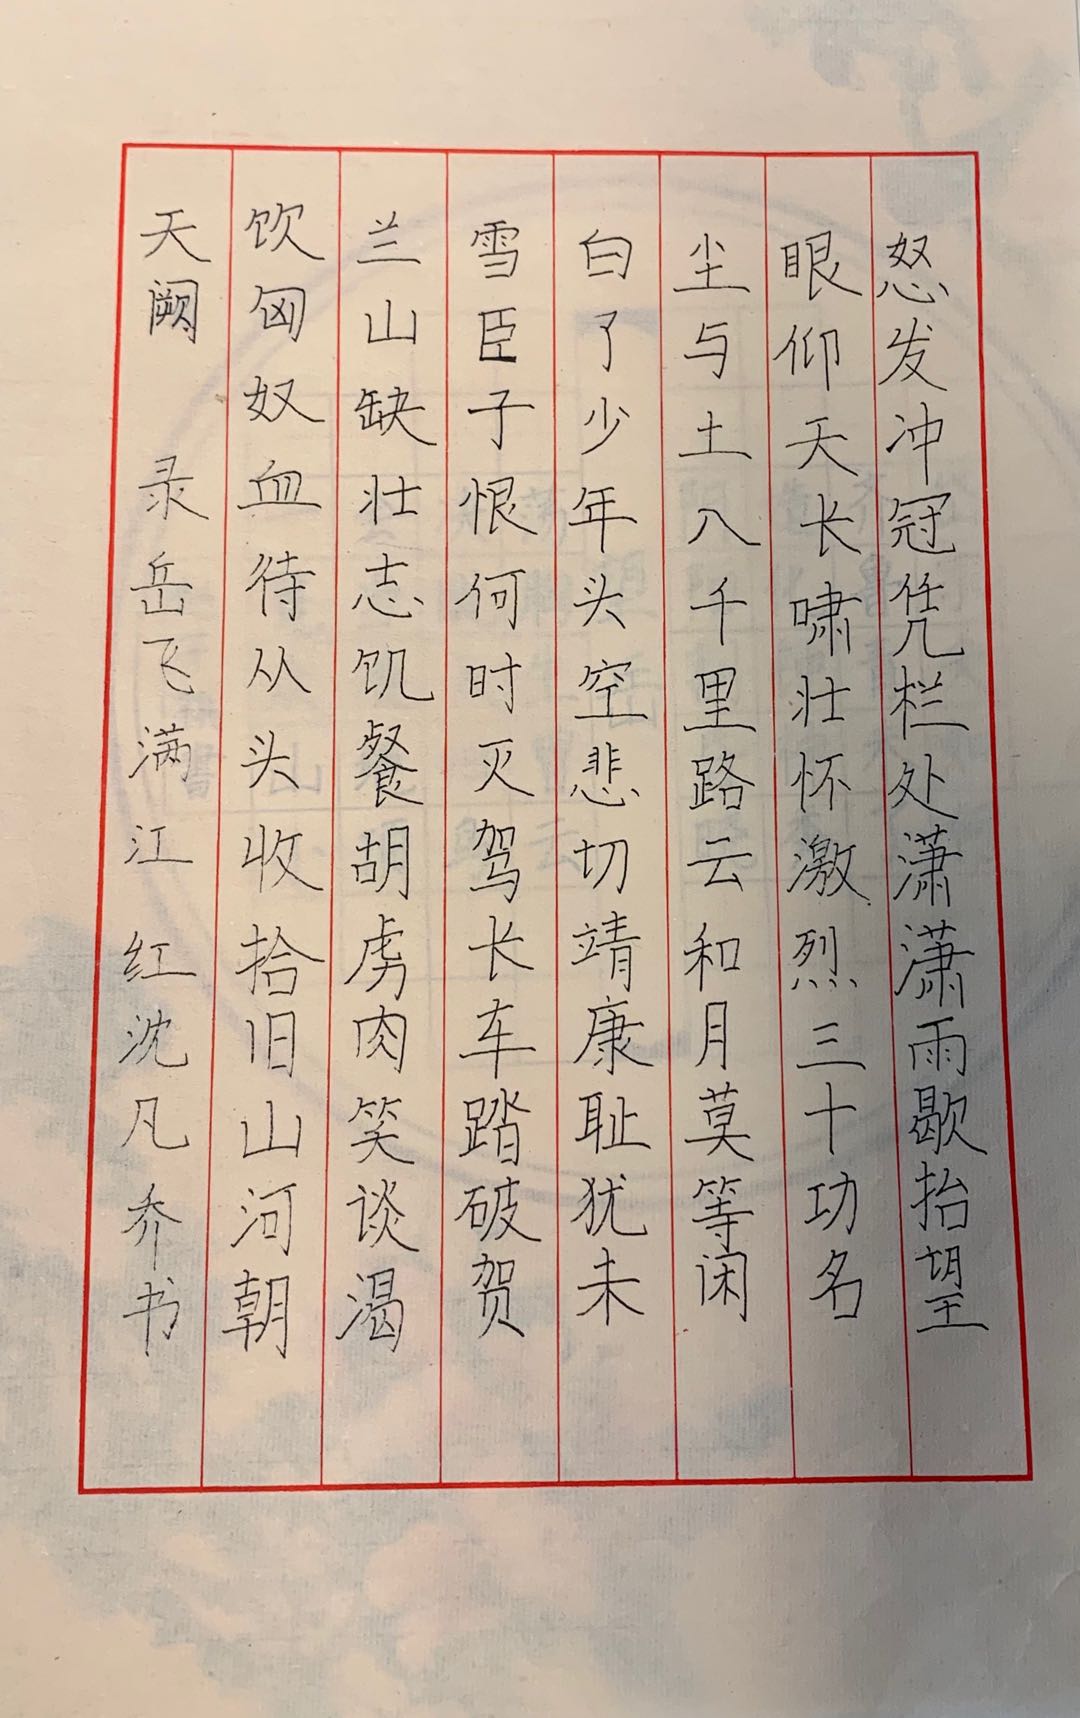 怒发冲冠凭栏处潇潇雨歇抬望
眼仰天长啸壮怀激烈三十功名
尘与土八千里路云和月莫等闲
白了少年头空悲切靖康耻犹未
雪臣子恨何时灭驾长车踏破贺
兰山缺壮志饥餐胡虏肉笑谈渴
饮匈奴血待从头收拾旧山河朝
天阙 录岳飞满江红沈凡乔书